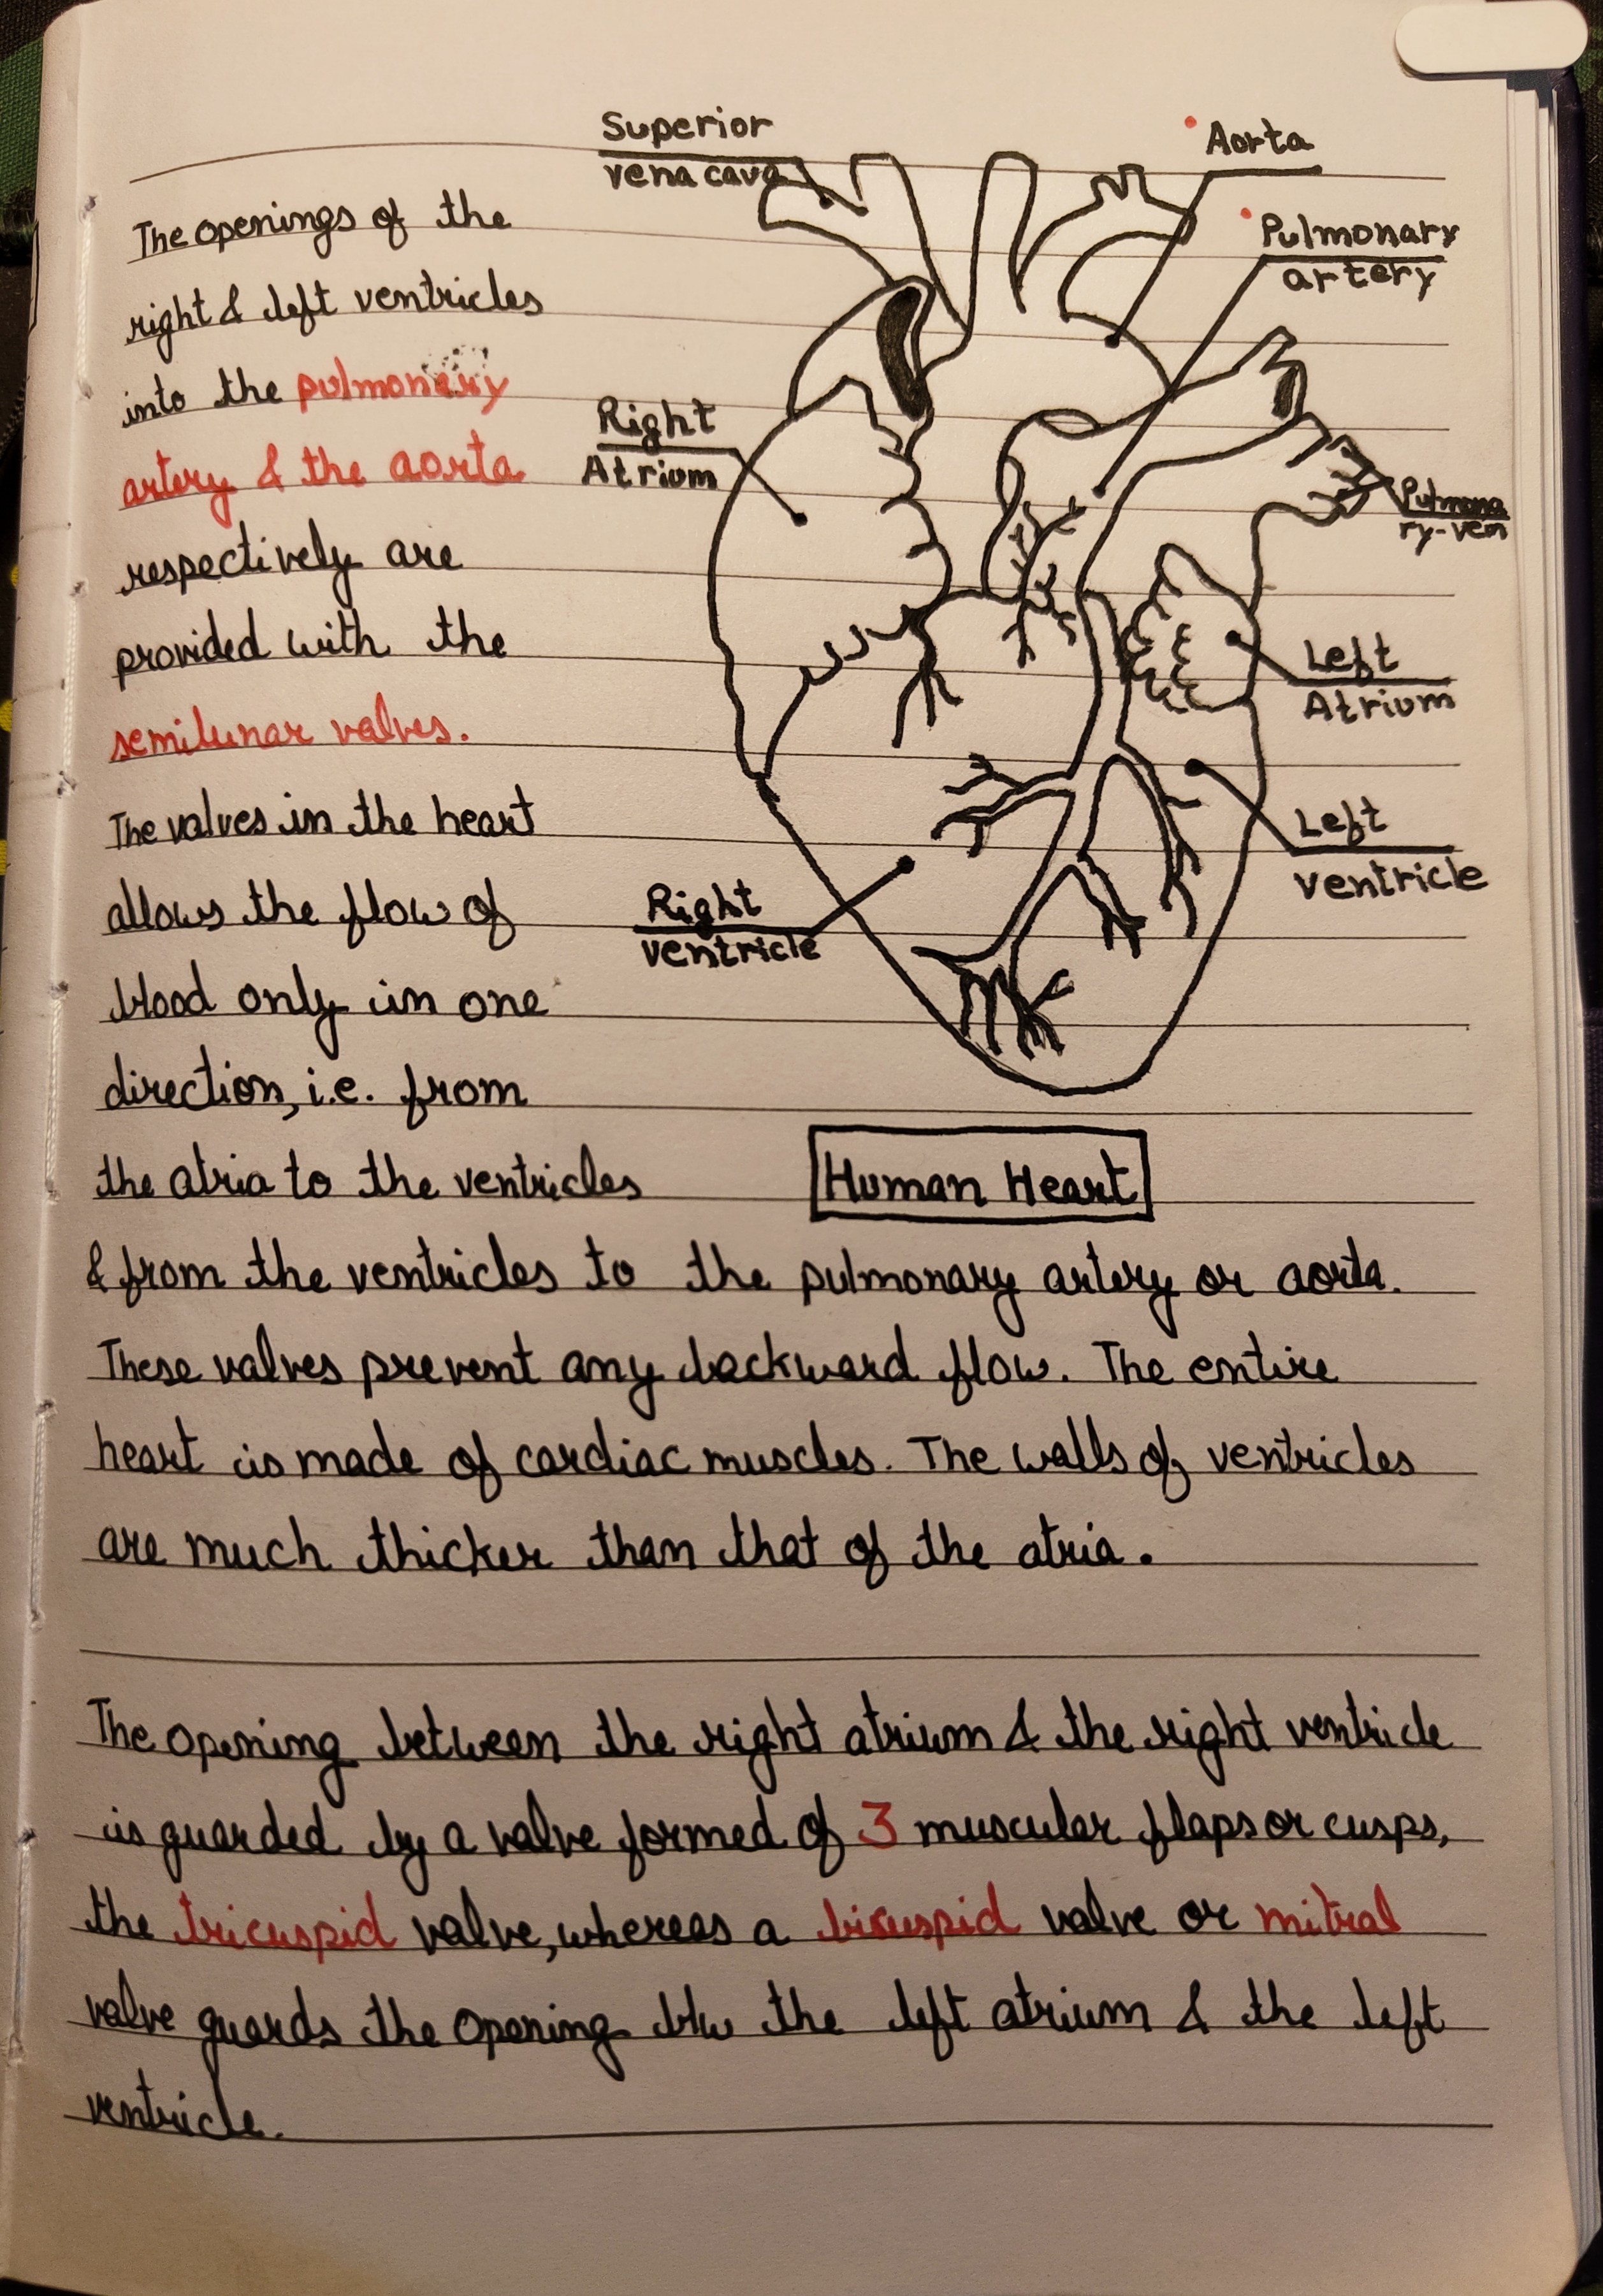 Superior
vena cava
Aorta
Pulmonary
artery
Right
Atrium
Pulmona
ry-vein
Left
Atrium
Left
ventricle
Right
ventricle
Human Heart
The openings of the
right & left ventricles
into the pulmonary
artery & the aorta
respectively are
provided with the
semilunar valves.
The valves in the heart
allows the flow of
blood only in one
direction, i.e. from
the atria to the ventricles
& from the ventricles to the pulmonary artery or aorta.
These valves prevent any backward flow. The entire
heart is made of cardiac muscles. The walls of ventricles
are much thicker than that of the atria.
The opening between the right atrium & the right ventricle
is guarded by a valve formed of 3 muscular flaps or cusps,
the tricuspid valve, whereas a bicuspid valve or mitral
valve guards the opening b/w the left atrium & the left
ventricle.